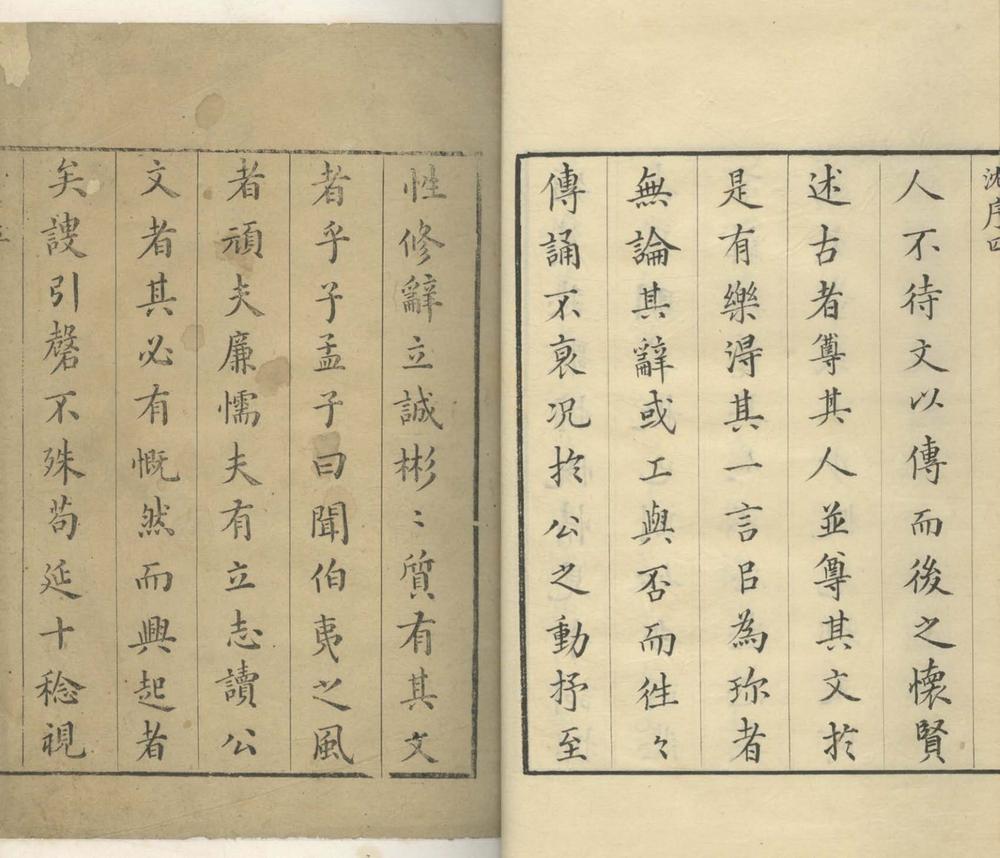 沈序四
人不待文以傳而後之懷賢
述古者尊其人並尊其文於
是有樂淂其一言㠯為珎者
無論其辭或工與否而徃〻
傳誦不衰况扵公之動抒至
性修辭立誠彬〻質有其文
者乎子孟子曰聞伯夷之風
者頑夫廉懦夫有立志讀公
文者其必有慨然而興起者
矣謏引罄不殊苟延十稔視